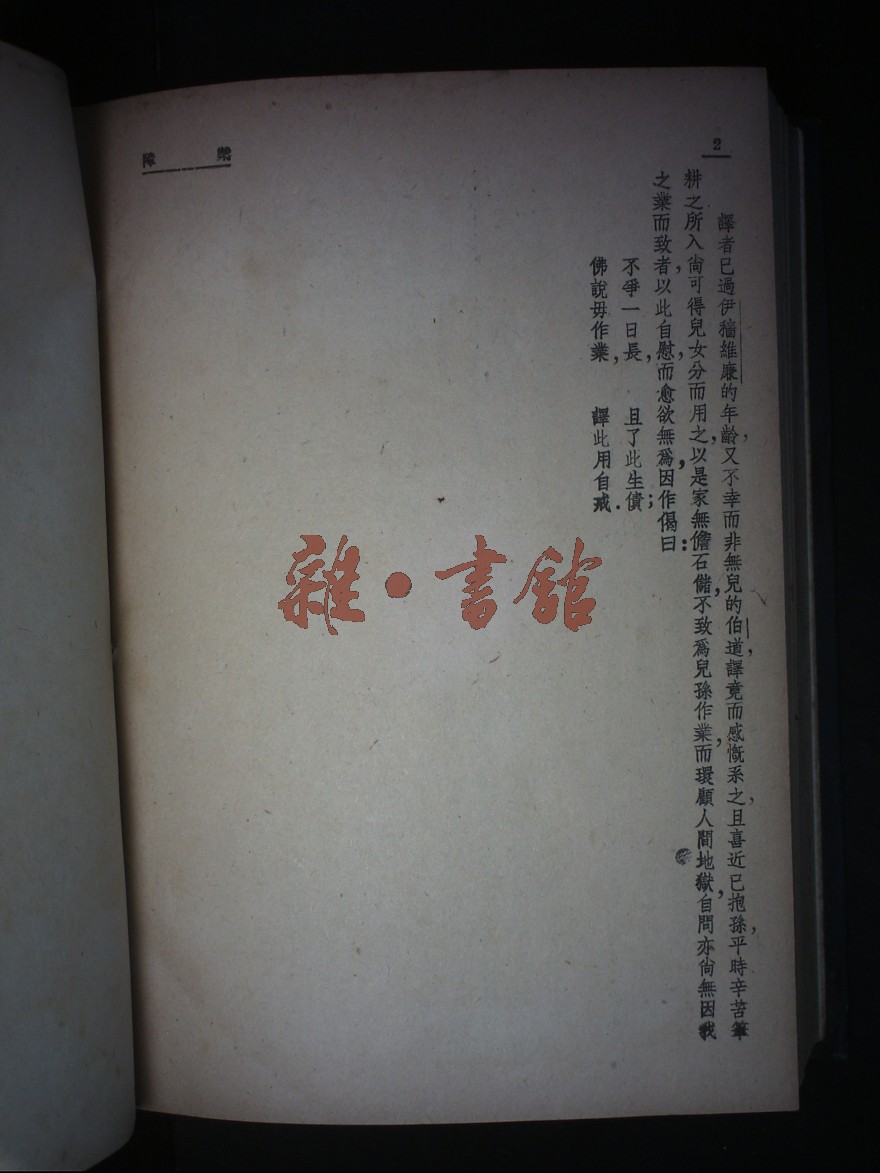 2
業障
譯者已過伊穡維廉的年齡，又不幸而非無兒的伯道，譯竟而感慨系之，且喜近已抱孫，平時辛苦筆
耕之所入，尙可得兒女分而用之，以是家無儋石儲，不致爲兒孫作業，而環顧人間地獄，自問亦尙無因我
之業而致者，以此自慰而愈欲無爲，因作偈曰：
不爭一日長，且了此生債；
佛說毋作業，譯此用自戒．
雜·書館